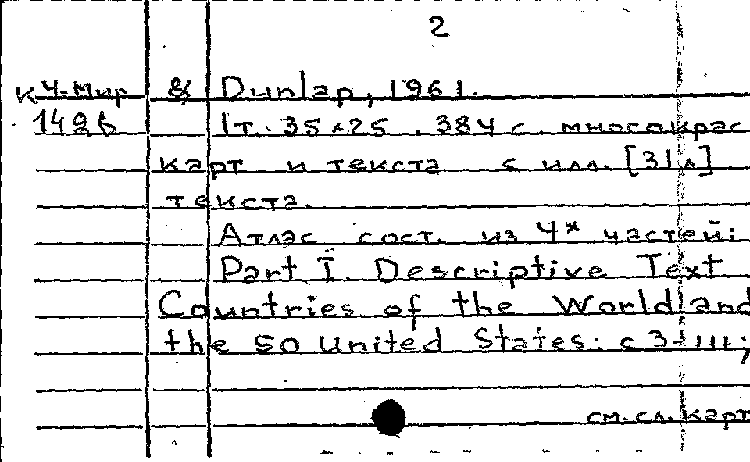 2
К Ч-Мир & Dunlap, 1961.
149б 1т. 35×25. 384 с. многокрас
карт и текста с илл. [31л]
текста.
Атлас сост. из 4х частей:
Part I. Descriptive Text
Countries of the World and
the 50 United States: с 3-111;
см.сл.карт